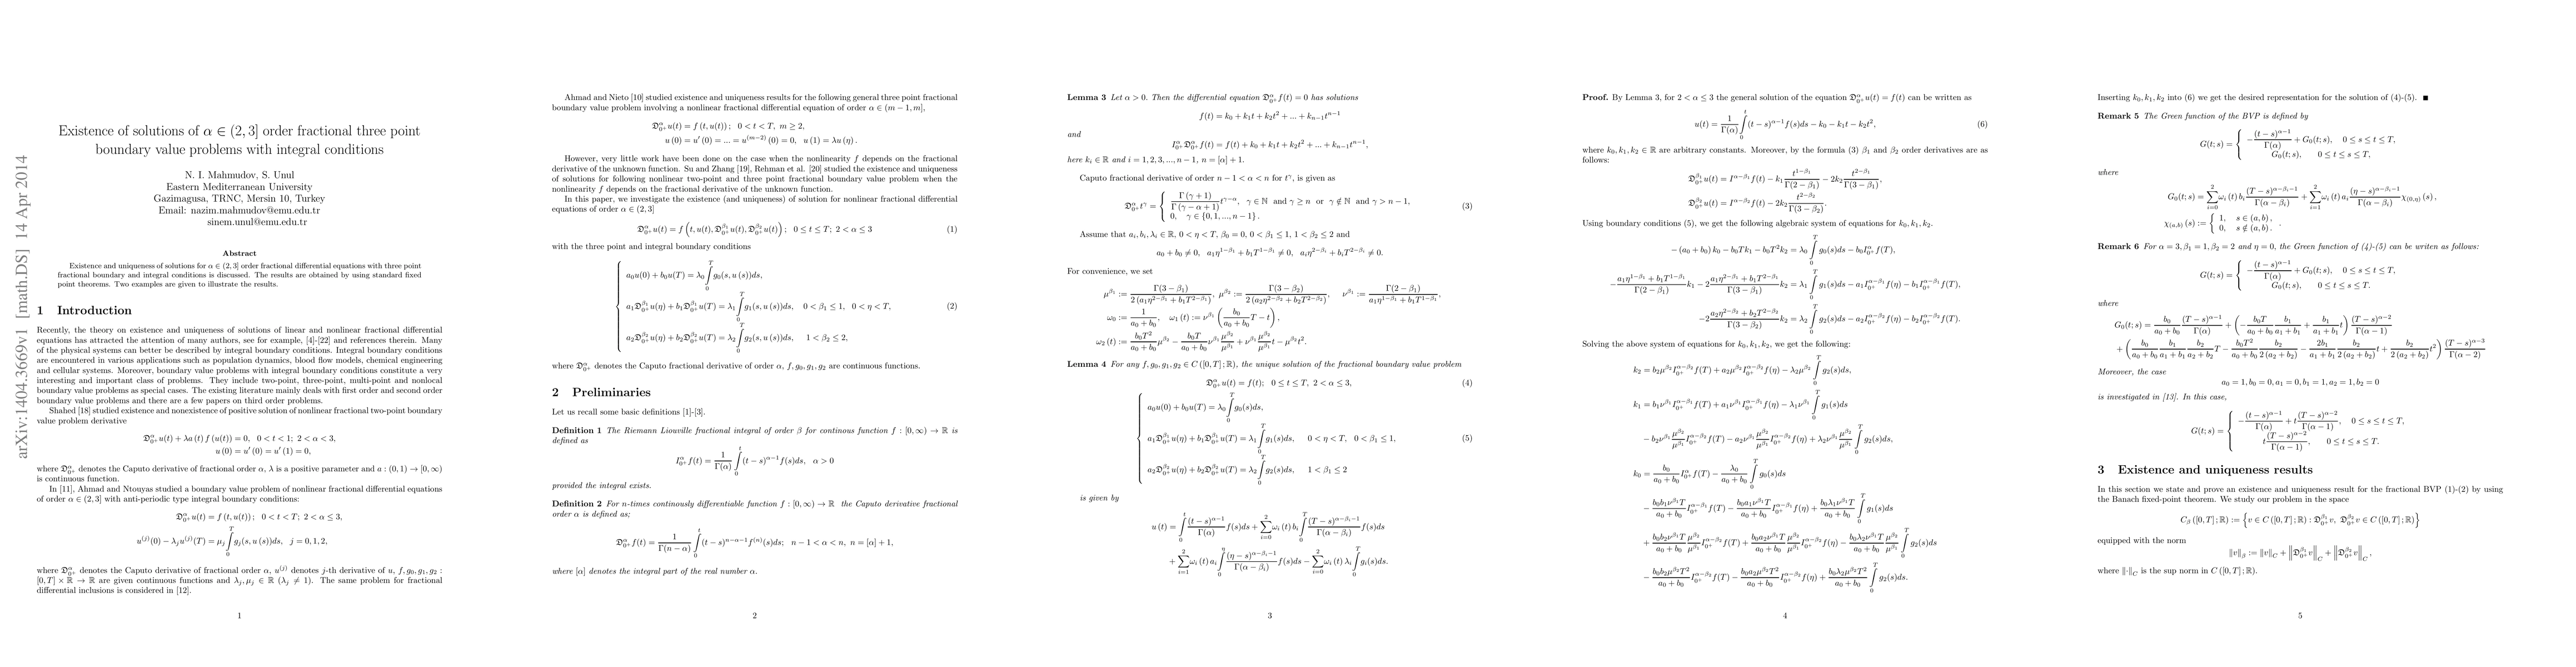 arXiv:1404.3669v1 [math.DS] 14 Apr 2014
Existence of solutions of α ∈ (2, 3] order fractional three point
boundary value problems with integral conditions
N. I. Mahmudov, S. Unul
Eastern Mediterranean University
Gazimagusa, TRNC, Mersin 10, Turkey
Email: nazim.mahmudov@emu.edu.tr
sinem.unul@emu.edu.tr
Abstract
Existence and uniqueness of solutions for α ∈ (2, 3] order fractional differential equations with three point
fractional boundary and integral conditions is discussed. The results are obtained by using standard fixed
point theorems. Two examples are given to illustrate the results.
1 Introduction
Recently, the theory on existence and uniqueness of solutions of linear and nonlinear fractional differential
equations has attracted the attention of many authors, see for example, [4]-[22] and references therein. Many
of the physical systems can better be described by integral boundary conditions. Integral boundary conditions
are encountered in various applications such as population dynamics, blood flow models, chemical engineering
and cellular systems. Moreover, boundary value problems with integral boundary conditions constitute a very
interesting and important class of problems. They include two-point, three-point, multi-point and nonlocal
boundary value problems as special cases. The existing literature mainly deals with first order and second order
boundary value problems and there are a few papers on third order problems.
Shahed [18] studied existence and nonexistence of positive solution of nonlinear fractional two-point boundary
value problem derivative
𝔇^α_{0+} u(t) + λa (t) f (u(t)) = 0, 0 < t < 1; 2 < α < 3,
u (0) = u′ (0) = u′ (1) = 0,
where 𝔇^α_{0+} denotes the Caputo derivative of fractional order α, λ is a positive parameter and a : (0, 1) → [0, ∞)
is continuous function.
In [11], Ahmad and Ntouyas studied a boundary value problem of nonlinear fractional differential equations
of order α ∈ (2, 3] with anti-periodic type integral boundary conditions:
𝔇^α_{0+} u(t) = f (t, u(t)) ; 0 < t < T; 2 < α ≤ 3,
u^{(j)}(0) − λ_j u^{(j)} (T) = μ_j ∫_0^T g_j(s, u (s))ds, j = 0, 1, 2,
where 𝔇^α_{0+} denotes the Caputo derivative of fractional order α, u^{(j)} denotes j-th derivative of u, f, g_0, g_1, g_2 :
[0, T] × ℝ → ℝ are given continuous functions and λ_j, μ_j ∈ ℝ (λ_j ≠ 1). The same problem for fractional
differential inclusions is considered in [12].
1
Ahmad and Nieto [10] studied existence and uniqueness results for the following general three point fractional
boundary value problem involving a nonlinear fractional differential equation of order α ∈ (m − 1, m],
𝔇^α_{0+} u(t) = f (t, u(t)) ; 0 < t < T, m ≥ 2,
u (0) = u′ (0) = ... = u^{(m−2)} (0) = 0, u (1) = λu (η) .
However, very little work have been done on the case when the nonlinearity f depends on the fractional
derivative of the unknown function. Su and Zhang [19], Rehman et al. [20] studied the existence and uniqueness
of solutions for following nonlinear two-point and three point fractional boundary value problem when the
nonlinearity f depends on the fractional derivative of the unknown function.
In this paper, we investigate the existence (and uniqueness) of solution for nonlinear fractional differential
equations of order α ∈ (2, 3]
𝔇^α_{0+} u(t) = f (t, u(t), 𝔇^{β_1}_{0+} u(t), 𝔇^{β_2}_{0+} u(t)) ; 0 ≤ t ≤ T; 2 < α ≤ 3 (1)
with the three point and integral boundary conditions
a_0u(0) + b_0u(T) = λ_0 ∫_0^T g_0(s, u (s))ds,
a_1𝔇^{β_1}_{0+} u(η) + b_1𝔇^{β_1}_{0+} u(T) = λ_1 ∫_0^T g_1(s, u (s))ds, 0 < β_1 ≤ 1, 0 < η < T, (2)
a_2𝔇^{β_2}_{0+} u(η) + b_2𝔇^{β_2}_{0+} u(T) = λ_2 ∫_0^T g_2(s, u (s))ds, 1 < β_2 ≤ 2,
where 𝔇^α_{0+} denotes the Caputo fractional derivative of order α, f, g_0, g_1, g_2 are continuous functions.
2 Preliminaries
Let us recall some basic definitions [1]-[3].
Definition 1 The Riemann Liouville fractional integral of order β for continous function f : [0, ∞) → ℝ is
defined as
I^α_{0+} f(t) = 1/Γ(α) ∫_0^t (t − s)^{α−1} f(s)ds, α > 0
provided the integral exists.
Definition 2 For n-times continously differentiable function f : [0, ∞) → ℝ the Caputo derivative fractional
order α is defined as;
𝔇^α_{0+} f(t) = 1/Γ(n − α) ∫_0^t (t − s)^{n−α−1} f^{(n)}(s)ds; n − 1 < α < n, n = [α] + 1,
where [α] denotes the integral part of the real number α.
2
Lemma 3 Let α > 0. Then the differential equation 𝔇^α_{0+} f(t) = 0 has solutions
f(t) = k_0 + k_1t + k_2t^2 + ... + k_{n−1}t^{n−1}
and
I^α_{0+} 𝔇^α_{0+} f(t) = f(t) + k_0 + k_1t + k_2t^2 + ... + k_{n−1}t^{n−1},
here k_i ∈ ℝ and i = 1, 2, 3, ..., n − 1, n = [α] + 1.
Caputo fractional derivative of order n − 1 < α < n for t^γ, is given as
𝔇^α_{0+} t^γ = { Γ (γ + 1)/Γ (γ − α + 1) t^{γ−α}, γ ∈ ℕ and γ ≥ n or γ ∉ ℕ and γ > n − 1, (3)
0, γ ∈ {0, 1, ..., n − 1} .
Assume that a_i, b_i, λ_i ∈ ℝ, 0 < η < T, β_0 = 0, 0 < β_1 ≤ 1, 1 < β_2 ≤ 2 and
a_0 + b_0 ≠ 0, a_1η^{1−β_1} + b_1T^{1−β_1} ≠ 0, a_iη^{2−β_i} + b_iT^{2−β_i} ≠ 0.
For convenience, we set
μ^{β_1} := Γ(3 − β_1)/(2 (a_1η^{2−β_1} + b_1T^{2−β_1})), μ^{β_2} := Γ(3 − β_2)/(2 (a_2η^{2−β_2} + b_2T^{2−β_2})), ν^{β_1} := Γ(2 − β_1)/(a_1η^{1−β_1} + b_1T^{1−β_1}),
ω_0 := 1/(a_0 + b_0), ω_1 (t) := ν^{β_1} (b_0/(a_0 + b_0) T − t) ,
ω_2 (t) := b_0T^2/(a_0 + b_0) μ^{β_2} − b_0T/(a_0 + b_0) ν^{β_1} μ^{β_2}/μ^{β_1} + ν^{β_1} μ^{β_2}/μ^{β_1} t − μ^{β_2}t^2.
Lemma 4 For any f, g_0, g_1, g_2 ∈ C ([0, T] ; ℝ), the unique solution of the fractional boundary value problem
𝔇^α_{0+} u(t) = f(t); 0 ≤ t ≤ T, 2 < α ≤ 3, (4)
a_0u(0) + b_0u(T) = λ_0 ∫_0^T g_0(s)ds,
a_1𝔇^{β_1}_{0+} u(η) + b_1𝔇^{β_1}_{0+} u(T) = λ_1 ∫_0^T g_1(s)ds, 0 < η < T, 0 < β_1 ≤ 1, (5)
a_2𝔇^{β_2}_{0+} u(η) + b_2𝔇^{β_2}_{0+} u(T) = λ_2 ∫_0^T g_2(s)ds, 1 < β_1 ≤ 2
is given by
u (t) = ∫_0^t (t − s)^{α−1}/Γ(α) f(s)ds + Σ_{i=0}^2 ω_i (t) b_i ∫_0^T (T − s)^{α−β_i−1}/Γ(α − β_i) f(s)ds
+ Σ_{i=1}^2 ω_i (t) a_i ∫_0^η (η − s)^{α−β_i−1}/Γ(α − β_i) f(s)ds − Σ_{i=0}^2 ω_i (t) λ_i ∫_0^T g_i(s)ds.
3
Proof. By Lemma 3, for 2 < α ≤ 3 the general solution of the equation 𝔇^α_{0+} u(t) = f(t) can be written as
u(t) = 1/Γ(α) ∫_0^t (t − s)^{α−1} f(s)ds − k_0 − k_1t − k_2t^2, (6)
where k_0, k_1, k_2 ∈ ℝ are arbitrary constants. Moreover, by the formula (3) β_1 and β_2 order derivatives are as
follows:
𝔇^{β_1}_{0+} u(t) = I^{α−β_1} f(t) − k_1 t^{1−β_1}/Γ(2 − β_1) − 2k_2 t^{2−β_1}/Γ(3 − β_1),
𝔇^{β_2}_{0+} u(t) = I^{α−β_2} f(t) − 2k_2 t^{2−β_2}/Γ(3 − β_2).
Using boundary conditions (5), we get the following algebraic system of equations for k_0, k_1, k_2.
− (a_0 + b_0) k_0 − b_0Tk_1 − b_0T^2k_2 = λ_0 ∫_0^T g_0(s)ds − b_0I^α_{0+} f(T),
−(a_1η^{1−β_1} + b_1T^{1−β_1})/Γ(2 − β_1) k_1 − 2 (a_1η^{2−β_1} + b_1T^{2−β_1})/Γ(3 − β_1) k_2 = λ_1 ∫_0^T g_1(s)ds − a_1I^{α−β_1}_{0+} f(η) − b_1I^{α−β_1}_{0+} f(T),
−2 (a_2η^{2−β_2} + b_2T^{2−β_2})/Γ(3 − β_2) k_2 = λ_2 ∫_0^T g_2(s)ds − a_2I^{α−β_2}_{0+} f(η) − b_2I^{α−β_2}_{0+} f(T).
Solving the above system of equations for k_0, k_1, k_2, we get the following:
k_2 = b_2μ^{β_2}I^{α−β_2}_{0+} f(T) + a_2μ^{β_2}I^{α−β_2}_{0+} f(η) − λ_2μ^{β_2} ∫_0^T g_2(s)ds,
k_1 = b_1ν^{β_1}I^{α−β_1}_{0+} f(T) + a_1ν^{β_1}I^{α−β_1}_{0+} f(η) − λ_1ν^{β_1} ∫_0^T g_1(s)ds
− b_2ν^{β_1} μ^{β_2}/μ^{β_1} I^{α−β_2}_{0+} f(T) − a_2ν^{β_1} μ^{β_2}/μ^{β_1} I^{α−β_2}_{0+} f(η) + λ_2ν^{β_1} μ^{β_2}/μ^{β_1} ∫_0^T g_2(s)ds,
k_0 = b_0/(a_0 + b_0) I^α_{0+} f(T) − λ_0/(a_0 + b_0) ∫_0^T g_0(s)ds
− b_0b_1ν^{β_1}T/(a_0 + b_0) I^{α−β_1}_{0+} f(T) − b_0a_1ν^{β_1}T/(a_0 + b_0) I^{α−β_1}_{0+} f(η) + b_0λ_1ν^{β_1}T/(a_0 + b_0) ∫_0^T g_1(s)ds
+ b_0b_2ν^{β_1}T/(a_0 + b_0) μ^{β_2}/μ^{β_1} I^{α−β_2}_{0+} f(T) + b_0a_2ν^{β_1}T/(a_0 + b_0) μ^{β_2}/μ^{β_1} I^{α−β_2}_{0+} f(η) − b_0λ_2ν^{β_1}T/(a_0 + b_0) μ^{β_2}/μ^{β_1} ∫_0^T g_2(s)ds
− b_0b_2μ^{β_2}T^2/(a_0 + b_0) I^{α−β_2}_{0+} f(T) − b_0a_2μ^{β_2}T^2/(a_0 + b_0) I^{α−β_2}_{0+} f(η) + b_0λ_2μ^{β_2}T^2/(a_0 + b_0) ∫_0^T g_2(s)ds.
4
Inserting k_0, k_1, k_2 into (6) we get the desired representation for the solution of (4)-(5). ■
Remark 5 The Green function of the BVP is defined by
G(t; s) = { −(t − s)^{α−1}/Γ(α) + G_0(t; s), 0 ≤ s ≤ t ≤ T,
G_0(t; s), 0 ≤ t ≤ s ≤ T,
where
G_0(t; s) = Σ_{i=0}^2 ω_i (t) b_i (T − s)^{α−β_i−1}/Γ(α − β_i) + Σ_{i=1}^2 ω_i (t) a_i (η − s)^{α−β_i−1}/Γ(α − β_i) χ_{(0,η)} (s) ,
χ_{(a,b)} (s) := { 1, s ∈ (a, b) ,
0, s ∉ (a, b) . .
Remark 6 For α = 3, β_1 = 1, β_2 = 2 and η = 0, the Green function of (4)-(5) can be writen as follows:
G(t; s) = { −(t − s)^{α−1}/Γ(α) + G_0(t; s), 0 ≤ s ≤ t ≤ T,
G_0(t; s), 0 ≤ t ≤ s ≤ T.
where
G_0(t; s) = b_0/(a_0 + b_0) (T − s)^{α−1}/Γ(α) + (−b_0T/(a_0 + b_0) b_1/(a_1 + b_1) + b_1/(a_1 + b_1) t) (T − s)^{α−2}/Γ(α − 1)
+ (b_0/(a_0 + b_0) b_1/(a_1 + b_1) b_2/(a_2 + b_2) T − b_0T^2/(a_0 + b_0) b_2/(2 (a_2 + b_2)) − 2b_1/(a_1 + b_1) b_2/(2 (a_2 + b_2)) t + b_2/(2 (a_2 + b_2)) t^2) (T − s)^{α−3}/Γ(α − 2)
Moreover, the case
a_0 = 1, b_0 = 0, a_1 = 0, b_1 = 1, a_2 = 1, b_2 = 0
is investigated in [13]. In this case,
G(t; s) = { −(t − s)^{α−1}/Γ(α) + t (T − s)^{α−2}/Γ(α − 1), 0 ≤ s ≤ t ≤ T,
t (T − s)^{α−2}/Γ(α − 1), 0 ≤ t ≤ s ≤ T.
3 Existence and uniqueness results
In this section we state and prove an existence and uniqueness result for the fractional BVP (1)-(2) by using
the Banach fixed-point theorem. We study our problem in the space
C_β ([0, T] ; ℝ) := {v ∈ C ([0, T] ; ℝ) : 𝔇^{β_1}_{0+} v, 𝔇^{β_2}_{0+} v ∈ C ([0, T] ; ℝ)}
equipped with the norm
‖v‖_β := ‖v‖_C + ‖𝔇^{β_1}_{0+} v‖_C + ‖𝔇^{β_2}_{0+} v‖_C ,
where ‖·‖_C is the sup norm in C ([0, T] ; ℝ).
5